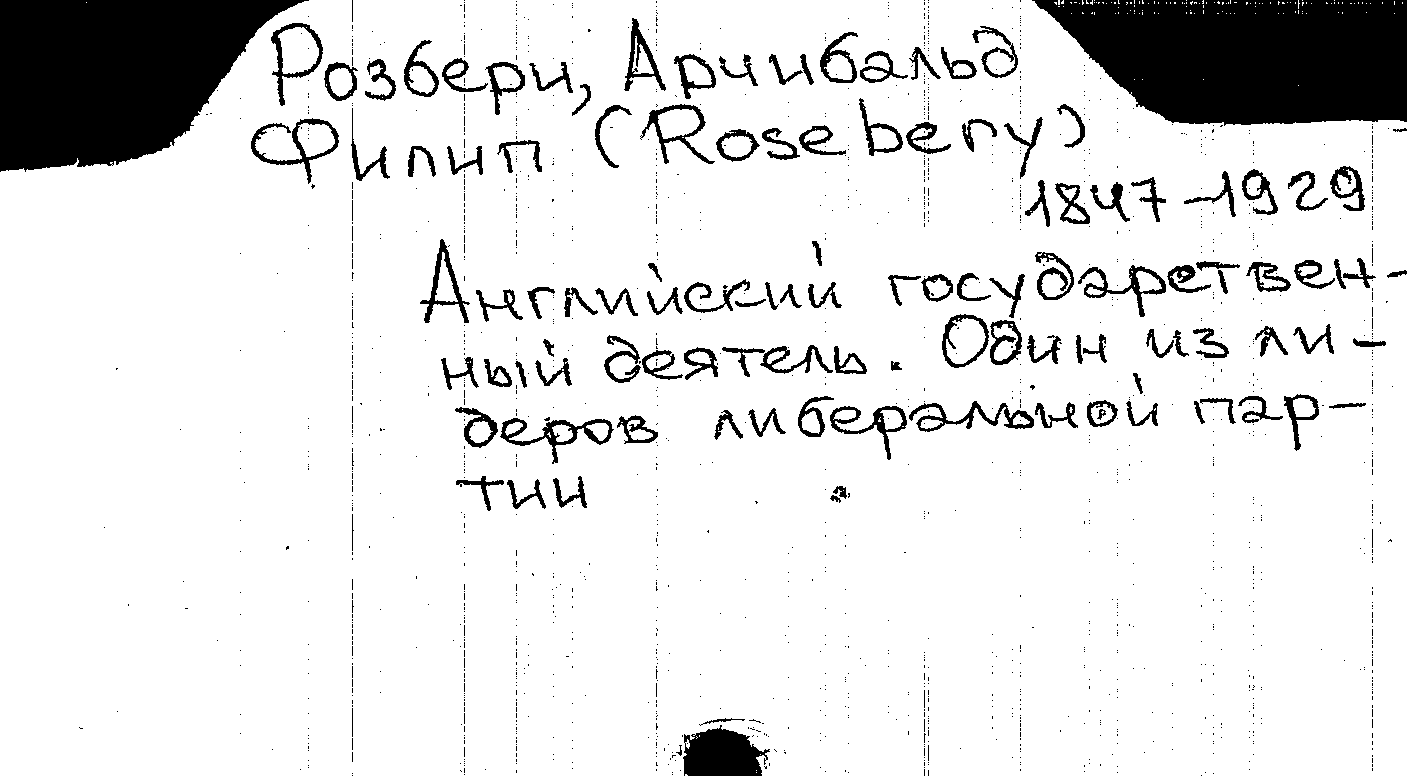 Розбери, Арчибальд
Филип (Rosebery)
1847-1929
Английский государствен-
ный деятель. Один из ли-
деров либеральной пар-
тии